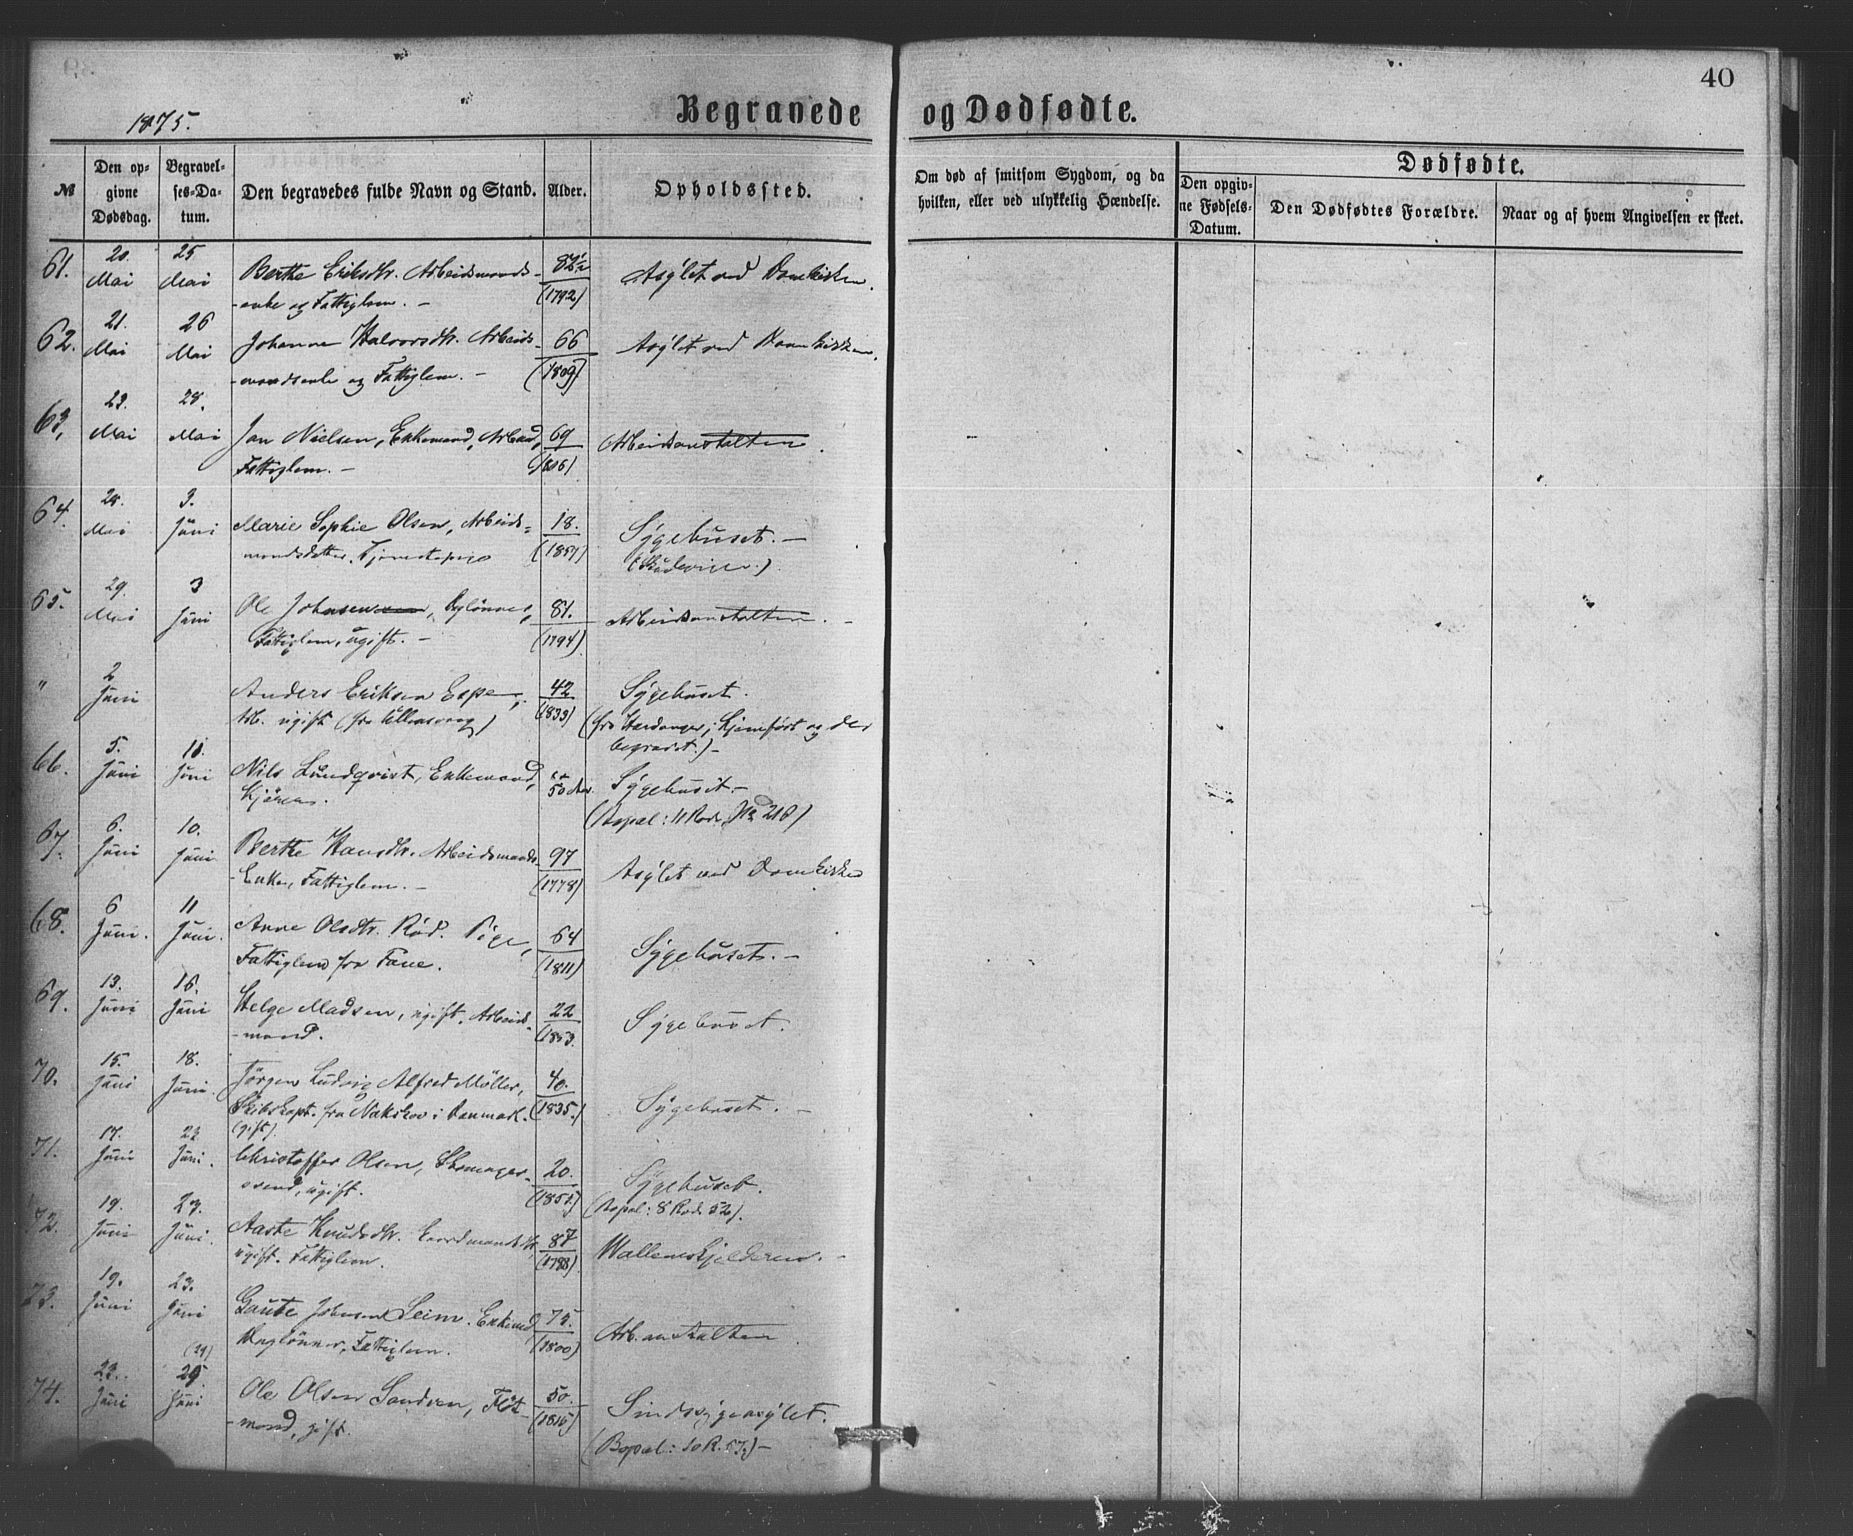 40
1875.
Begravede og Dødfødte.
№
Den opgivne Dødsdag.
Begravelses-Datum.
Den begravedes fulde Navn og Stand.
Alder.
Opholdssted.
Om død af smitsom Sygdom, og da hvilken, eller ved ulykkelig Hændelse.
Dødfødte.
Den opgivne Fødsels-Datum.
Den Dødfødtes Forældre.
Naar og af hvem Angivelsen er skeet.
61. 20. Mai 25 Mai Berthe Eriksdtr. Arbeidsmands- 82½ Asylet ved Domkirken.
-enke og Fattiglem. - (1792)
62. 21. Mai 26 Mai Johanne Halvorsdtr. Arbeids- 66 Asylet ved Domkirken.
-mandsenke og Fattiglem. - (1809)
63. 23. Mai 28. Mai Jan Nielsen, Enkemand, Arbmd, 69 Arbeidsanstalten.
Fattiglem. - (1806)
64. 28. Mai 3. Juni Marie Sophie Olsen, Arbeids- 18. Sygehuset. -
mandsdatter, Tjenestepige (1857)
65. 29. Mai 3 Juni Ole Johnsen, Døglønner, 81. Arbeidsanstalten. -
Fattiglem, ugift. - (1794)
" 2 Juni Anders Eriksen Espe, 42 Sygehuset.
Arb. ugift (fra Ullensvang) (1833) (fra Hardanger, hjemført og der
begravet.) -
66. 5. Juni 11. Juni Nils Lundqvist, Enkemand, 50 Aar Sygehuset -
Kjører. (Bopæl: 11 Rode, No 218)
67. 6. Juni 10. Juni Berthe Hansdtr. Arbeidsmands- 97 Asylet ved Domkirken
-Enke, Fattiglem. - (1778)
68. 6 Juni. 11 Juni. Anne Olsdtr. Rød. Pige, 64 Sygehuset. -
Fattiglem fra Fane. (1811)
69. 13. Juni 16. Juni Helge Madsen, ugift, Arbeids- 22 Sygehuset.
-mand. (1853
70. 15. Juni 18. Juni. Jørgen Ludvig Alfred Møller, 40. Sygehuset. -
Skibskapt. fra Nakskov i Danmark. (1835.)
(gift).
71. 17. Juni 22 Juni. Christoffer Olsen, Skomager- 20. Sygehuset.
svend, ugift. (1855) (Bopæl: 8 Rode 52).
72. 19. Juni 23. Juni. Aaste Knudsdtr. 87 Wallemskjelderen. -
ugift. Fattiglem. (1788)
73. 19. Juni 23. Juni Gaute Johnsen Seim. Enkemd 75. Arb.anstalten.
Døglønner, Fattiglem. (1800)
(24)
74. 22. Juni 25 Juni Ole Olsen Sandven, Fløt- 50. Sindssygeasylet.
-mand, gift. (Bopæl: 10 R. 57) -